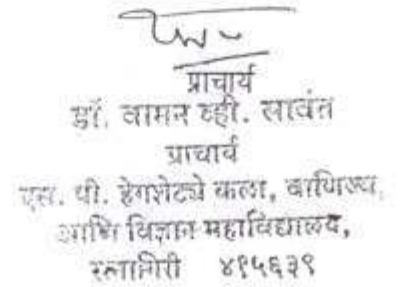 प्राचार्य
डॉ. वामन व्ही. सावंत
प्राचार्य
एस. पी. हेगशेट्ये कला, वाणिज्य,
आणि विज्ञान महाविद्यालय,
रत्नागिरी ४१५६३९